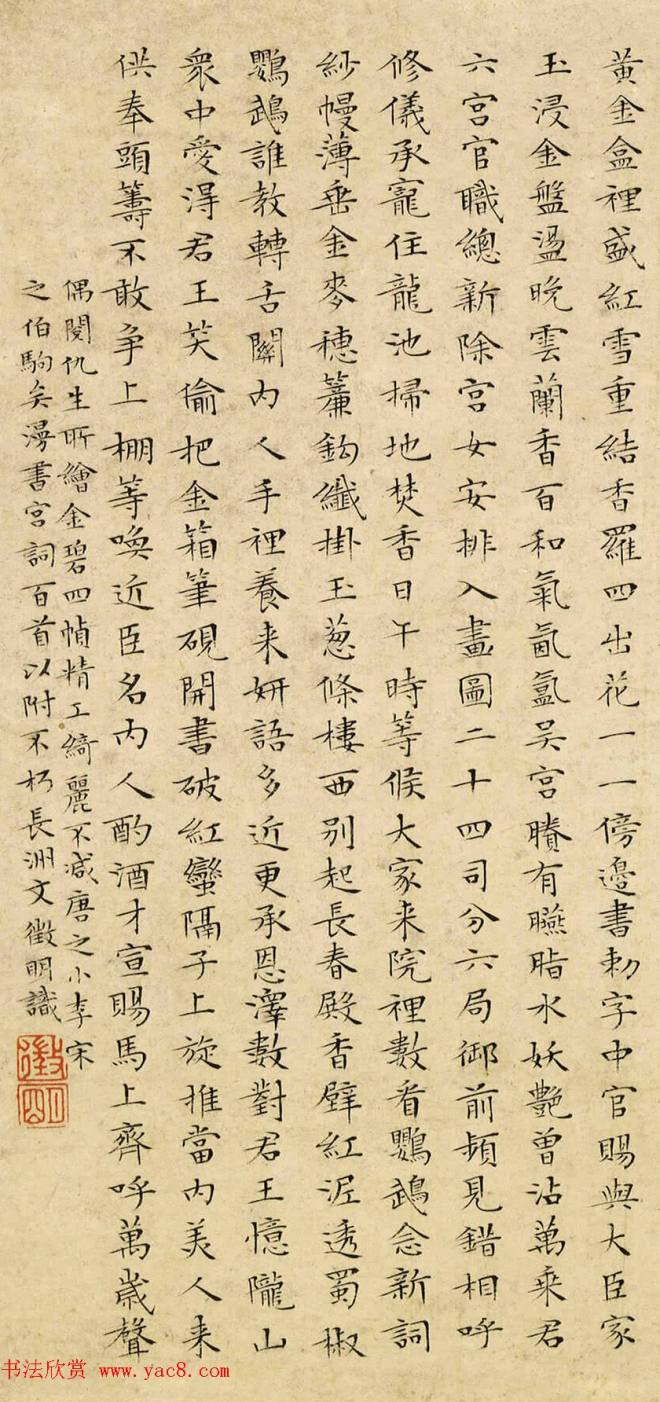 黃金盒裡盛紅雪重結香羅四出花一一傍邊書勅字中官賜與大臣家
玉浸金盤盪晚雲蘭香百和氣氤氳吴宮賸有臙脂水妖艷曾沾萬乘君
六宮官職總新除宮女安排入畫圖二十四司分六局御前頻見錯相呼
修儀承寵住龍池掃地焚香日午時等候大家来院裡數看鸚鵡念新詞
紗幔薄垂金麥穗簾鈎纖掛玉葱條樓西別起長春殿香壁紅泥透蜀椒
鸚鵡誰教轉舌關內人手裡養来妍語多近更承恩澤數對君王憶隴山
衆中愛得君王笑偷把金箱筆硯開書破紅蠻隔子上旋推當內美人来
供奉頭籌不敢争上棚等喚近臣名內人酌酒才宣賜馬上齊呼萬歲聲
偶閱仇生所繪金碧四幀精工綺麗不减唐之小李宋
之伯駒矣漫書宮詞百首以附不朽長洲文徵明識
徵明
书法欣赏 www.yac8.com